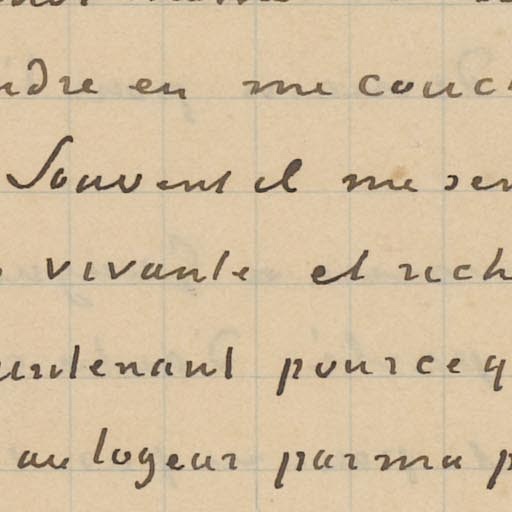 ndre en me couch
Souvent il me sem
vivante et rich
aintenant pour ce q
au logeur par ma p